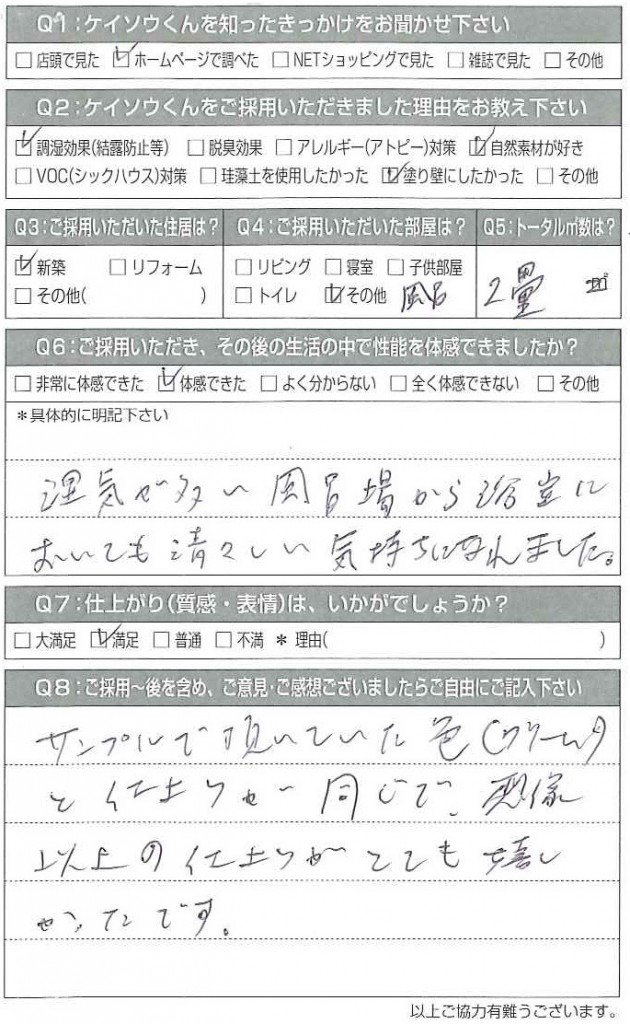 Q1:ケイソウくんを知ったきっかけをお聞かせ下さい
□店頭で見た ☑ホームページで調べた □NETショッピングで見た □雑誌で見た □その他
Q2:ケイソウくんをご採用いただきました理由をお教え下さい
☑調湿効果(結露防止等) □脱臭効果 □アレルギー(アトピー)対策 ☑自然素材が好き
□VOC(シックハウス)対策 □珪藻土を使用したかった ☑塗り壁にしたかった □その他
Q3:ご採用いただいた住居は? Q4:ご採用いただいた部屋は? Q5:トータル㎡数は?
☑新築 □リフォーム □リビング □寝室 □子供部屋
□その他( ) □トイレ ☑その他 風呂 2畳 ㎡
Q6:ご採用いただき、その後の生活の中で性能を体感できましたか?
□非常に体感できた ☑体感できた □よく分からない □全く体感できない □その他
*具体的に明記下さい
湿気が多い風呂場から浴室に
おいても清々しい気持ちになれました。
Q7:仕上がり(質感・表情)は、いかがでしょうか?
□大満足 ☑満足 □普通 □不満 *理由( )
Q8:ご採用〜後を含め、ご意見・ご感想ございましたらご自由にご記入下さい
サンプルで頂いていた色(クリーム)
と仕上りが同じで、想像
以上の仕上りがとても嬉し
かったです。
以上ご協力有難うございます。